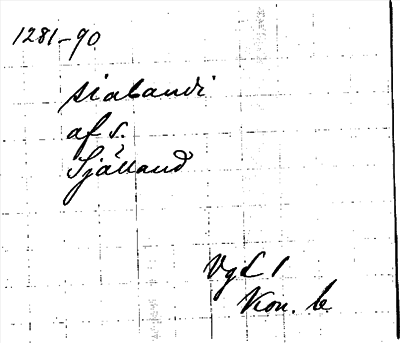 1281-90
sialandi
af s.
Sjålland
Vgl 1
Kon. b.